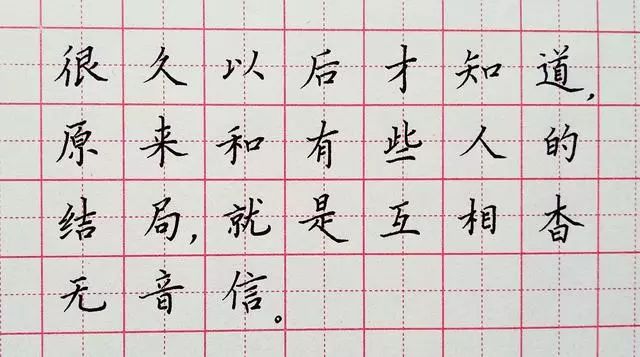 很久以后才知道，
原来和有些人的
结局，就是互相杳
无音信。